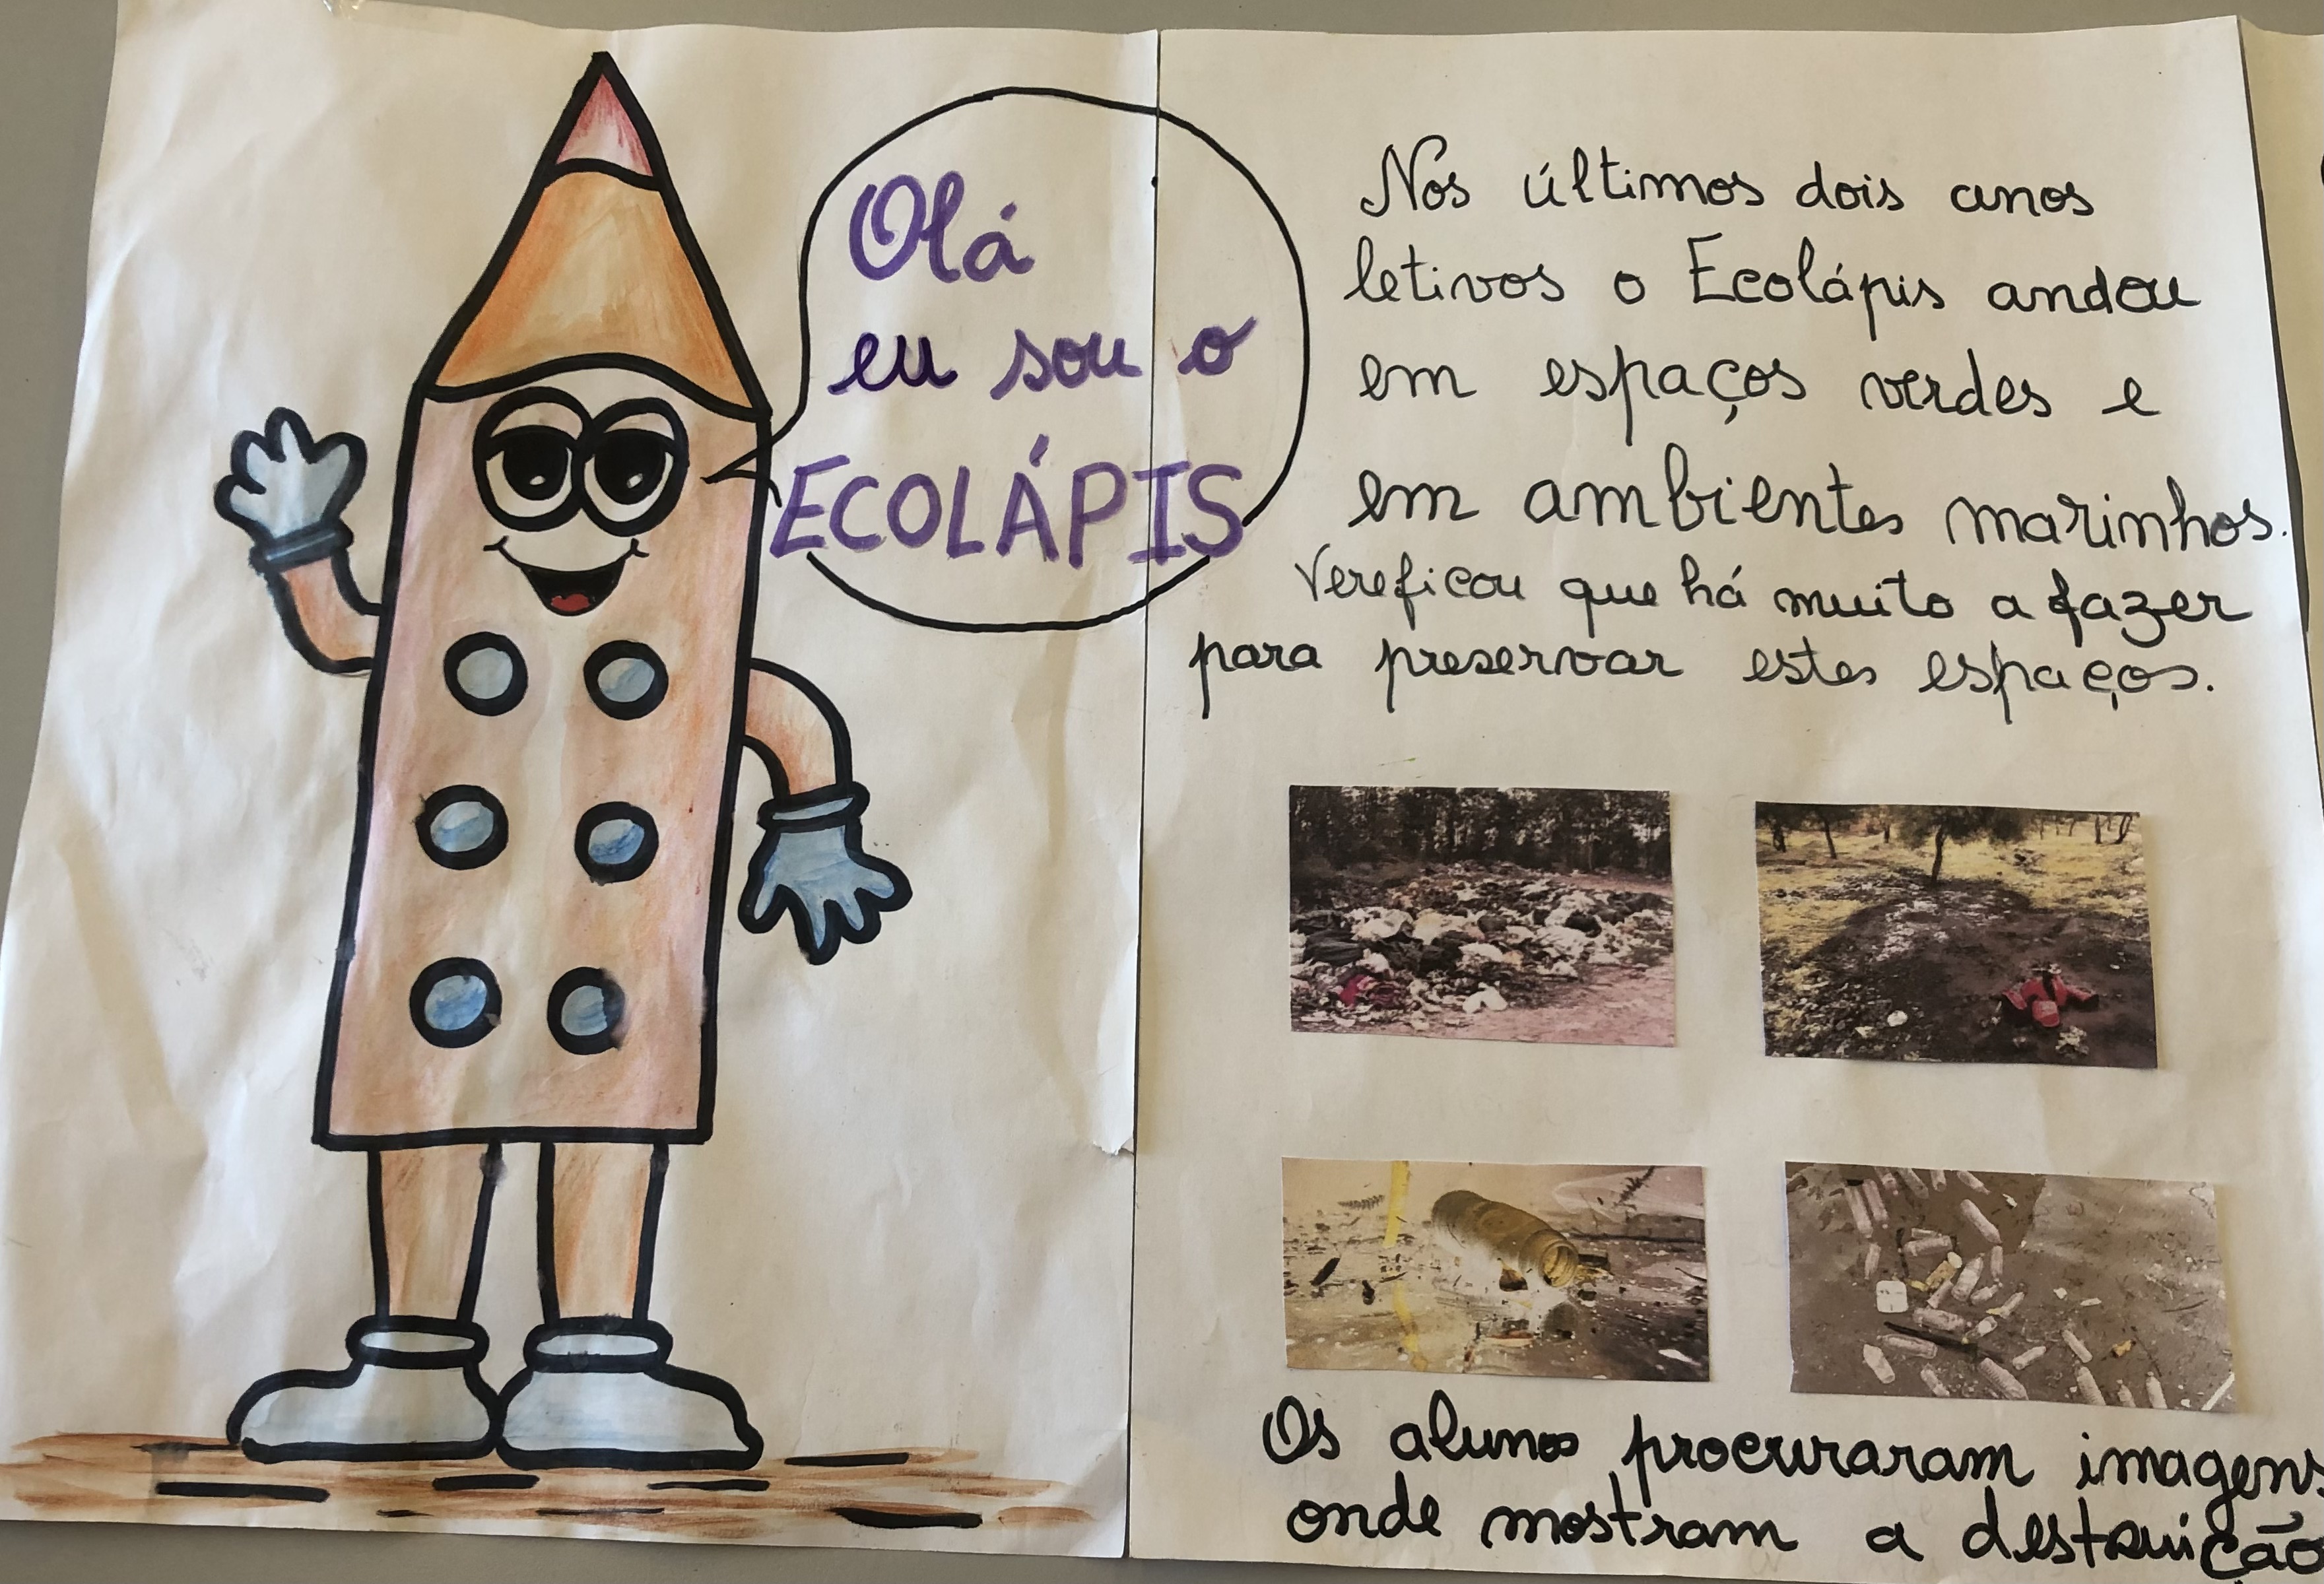 Olá
eu sou o
ECOLÁPIS
Nos últimos dois anos
letivos o Ecolápis andou
em espaços verdes e
em ambientes marinhos.
Vereficou que há muito a fazer
para preservar estes espaços.
Os alunos procuraram imagens
onde mostram a destruição